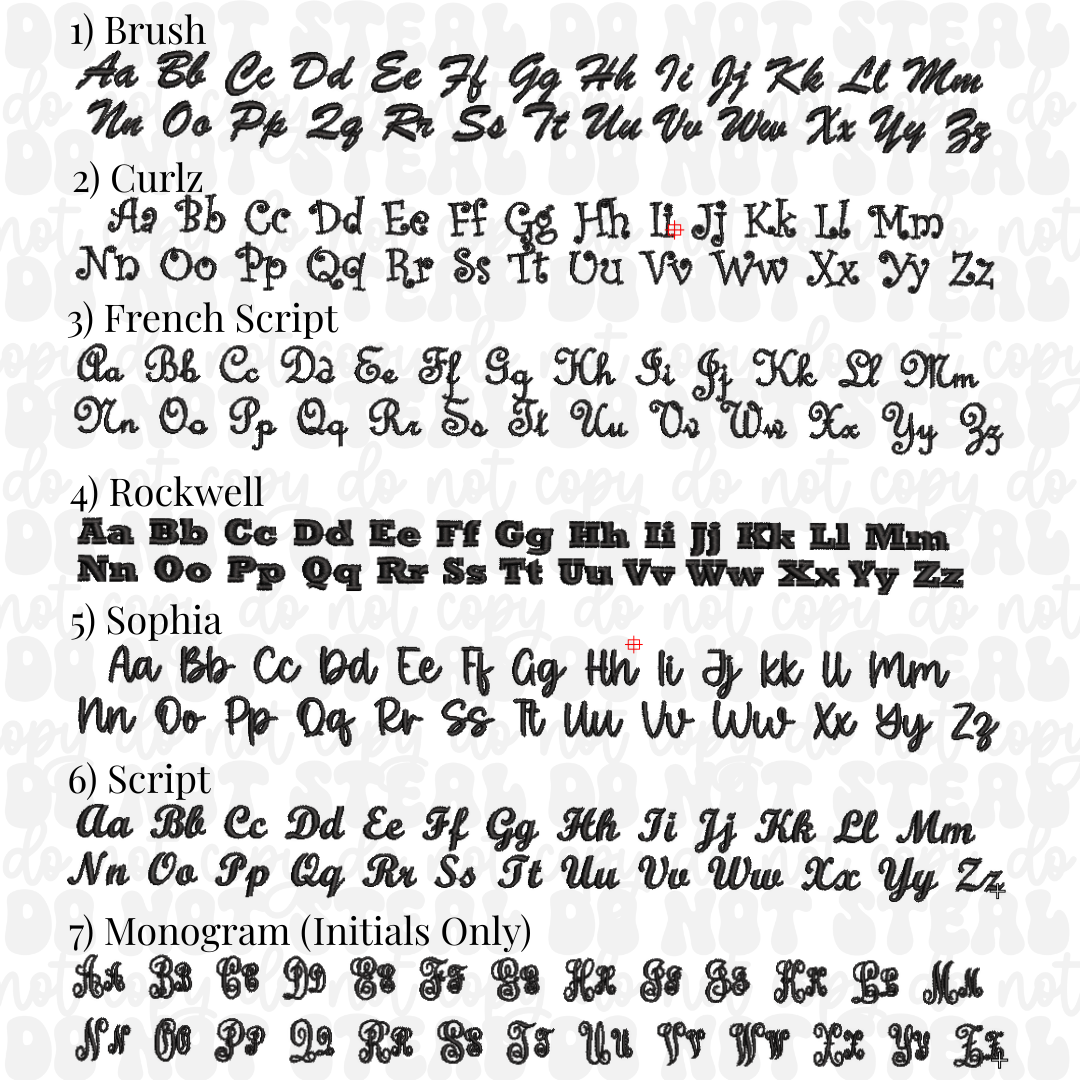 DO NOT STEAL DO NOT STEAL
1) Brush
Aa Bb Cc Dd Ee Ff Gg Hh Ii Jj Kk Ll Mm
Nn Oo Pp Qq Rr Ss Tt Uu Vv Ww Xx Yy Zz
2) Curlz
Aa Bb Cc Dd Ee Ff Gg Hh Ii Jj Kk Ll Mm
Nn Oo Pp Qq Rr Ss Tt Uu Vv Ww Xx Yy Zz
3) French Script
Aa Bb Cc Dd Ee Ff Gg Hh Ii Jj Kk Ll Mm
Nn Oo Pp Qq Rr Ss Tt Uu Vv Ww Xx Yy Zz
do not copy do not copy do
4) Rockwell
Aa Bb Cc Dd Ee Ff Gg Hh Ii Jj Kk Ll Mm
Nn Oo Pp Qq Rr Ss Tt Uu Vv Ww Xx Yy Zz
5) Sophia
Aa Bb Cc Dd Ee Ff Gg Hh Ii Jj Kk Ll Mm
Nn Oo Pp Qq Rr Ss Tt Uu Vv Ww Xx Yy Zz
6) Script
Aa Bb Cc Dd Ee Ff Gg Hh Ii Jj Kk Ll Mm
Nn Oo Pp Qq Rr Ss Tt Uu Vv Ww Xx Yy Zz
7) Monogram (Initials Only)
AA BB CC DD EE FF GG HH II JJ KK LL MM
NN OO PP QQ RR SS TT UU VV WW XX YY ZZ